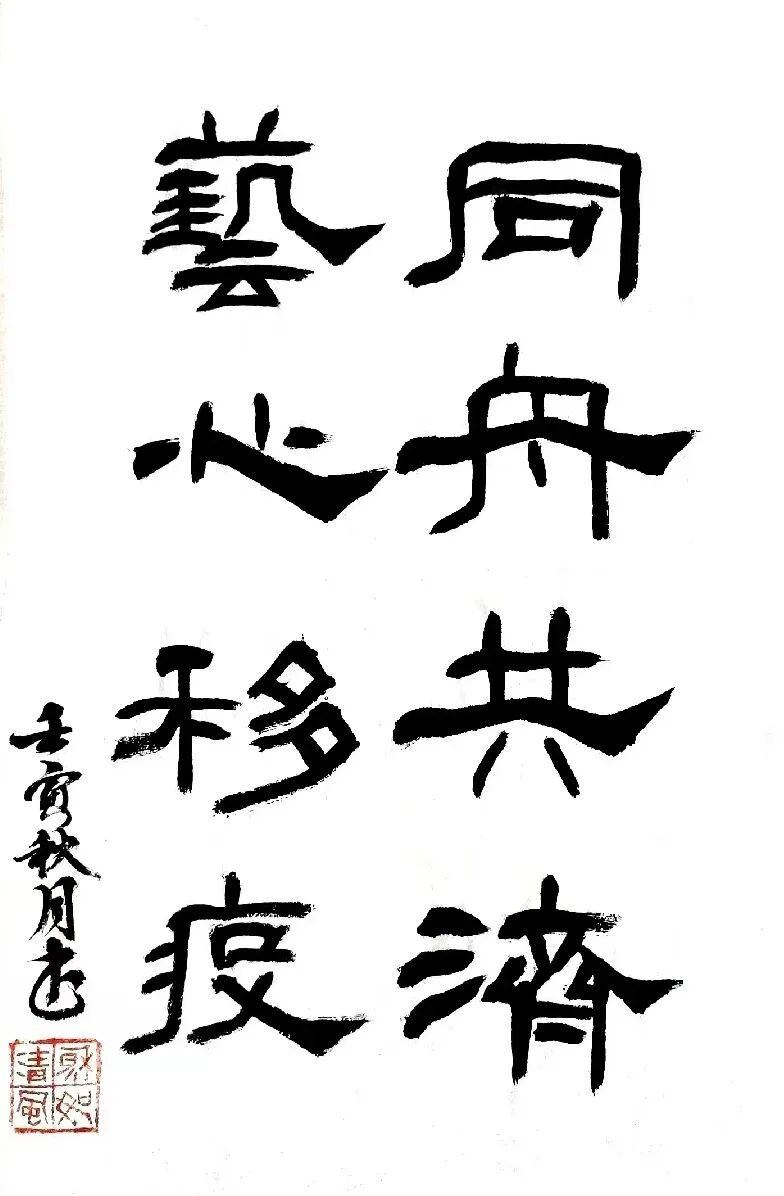 同舟共濟
藝心移疫
壬寅秋月
清風